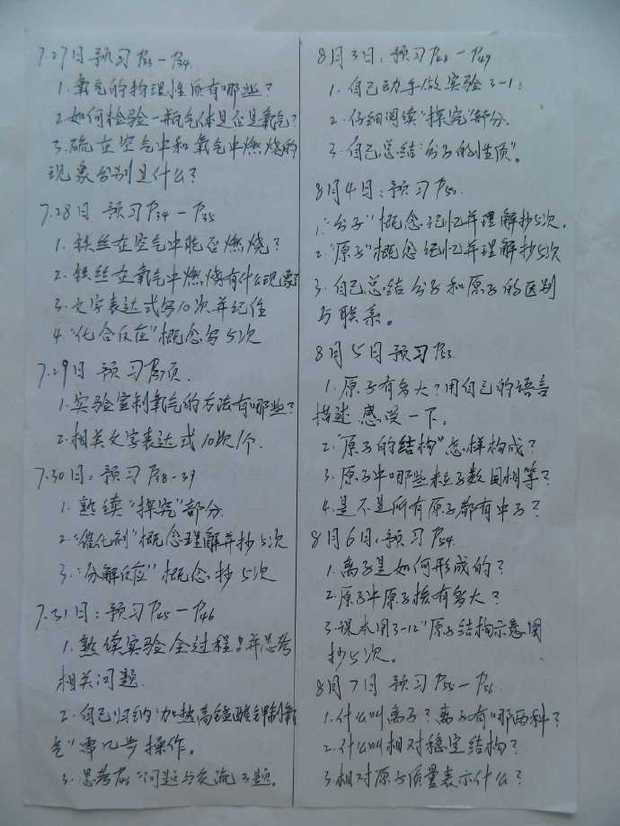 7.27日 预习P33-P34.
1.氧气的物理性质有哪些?
2.如何检验一瓶气体是否是氧气?
3.硫在空气中和氧气中燃烧的
现象分别是什么?
7.28日 预习P34-P35
1.铁丝在空气中能否燃烧?
2.铁丝在氧气中燃烧有什么现象
3.文字表达式写10次并记住
4."化合反应"概念写5次
7.29日 预习P37页.
1.实验室制氧气的方法有哪些?
2.相关文字表达式10次/个.
7.30日: 预习P38-39
1.熟读"探究"部分.
2."催化剂"概念理解并抄5次
3."分解反应"概念.抄5次
7.31日: 预习P45-P46
1.熟读实验全过程 并思考
相关问题.
2.自己归纳"加热高锰酸钾制氧
气"需几步操作。
3.思考 "问题与交流"3题。
8月3日: 预习P48-P49
1.自己动手做实验3-1;
2.仔细阅读"探究"部分.
3.自己总结"分子的性质"。
8月4日: 预习P50
1."分子"概念记忆并理解抄5次.
2."原子"概念记忆并理解抄5次
3.自己总结分子和原子的区别
与联系。
8月5日 预习P53
1.原子有多大?用自己的语言
描述 感受一下。
2."原子的结构"怎样构成?
3.原子中哪些粒子数目相等?
4.是不是所有原子都有中子?
8月6日: 预习P54
1.离子是如何形成的?
2.原子中原子核有多大?
3.课本图3-12"原子结构示意图
抄5次。
8月7日 预习P55-P56
1.什么叫离子?离子有哪两种?
2.什么叫相对稳定结构?
3.相对原子质量表示什么?